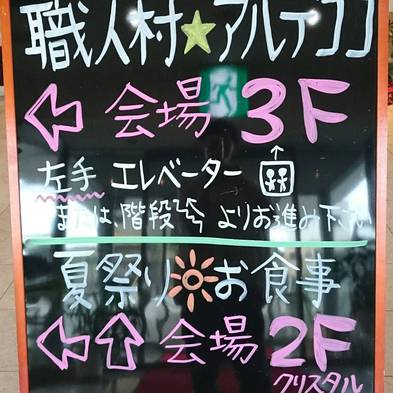 職人村★アルテココ
← 会場 3F
左手 エレベーター
または、階段 よりお進み下さい
夏祭り お食事
←↑ 会場 2F
クリスタル